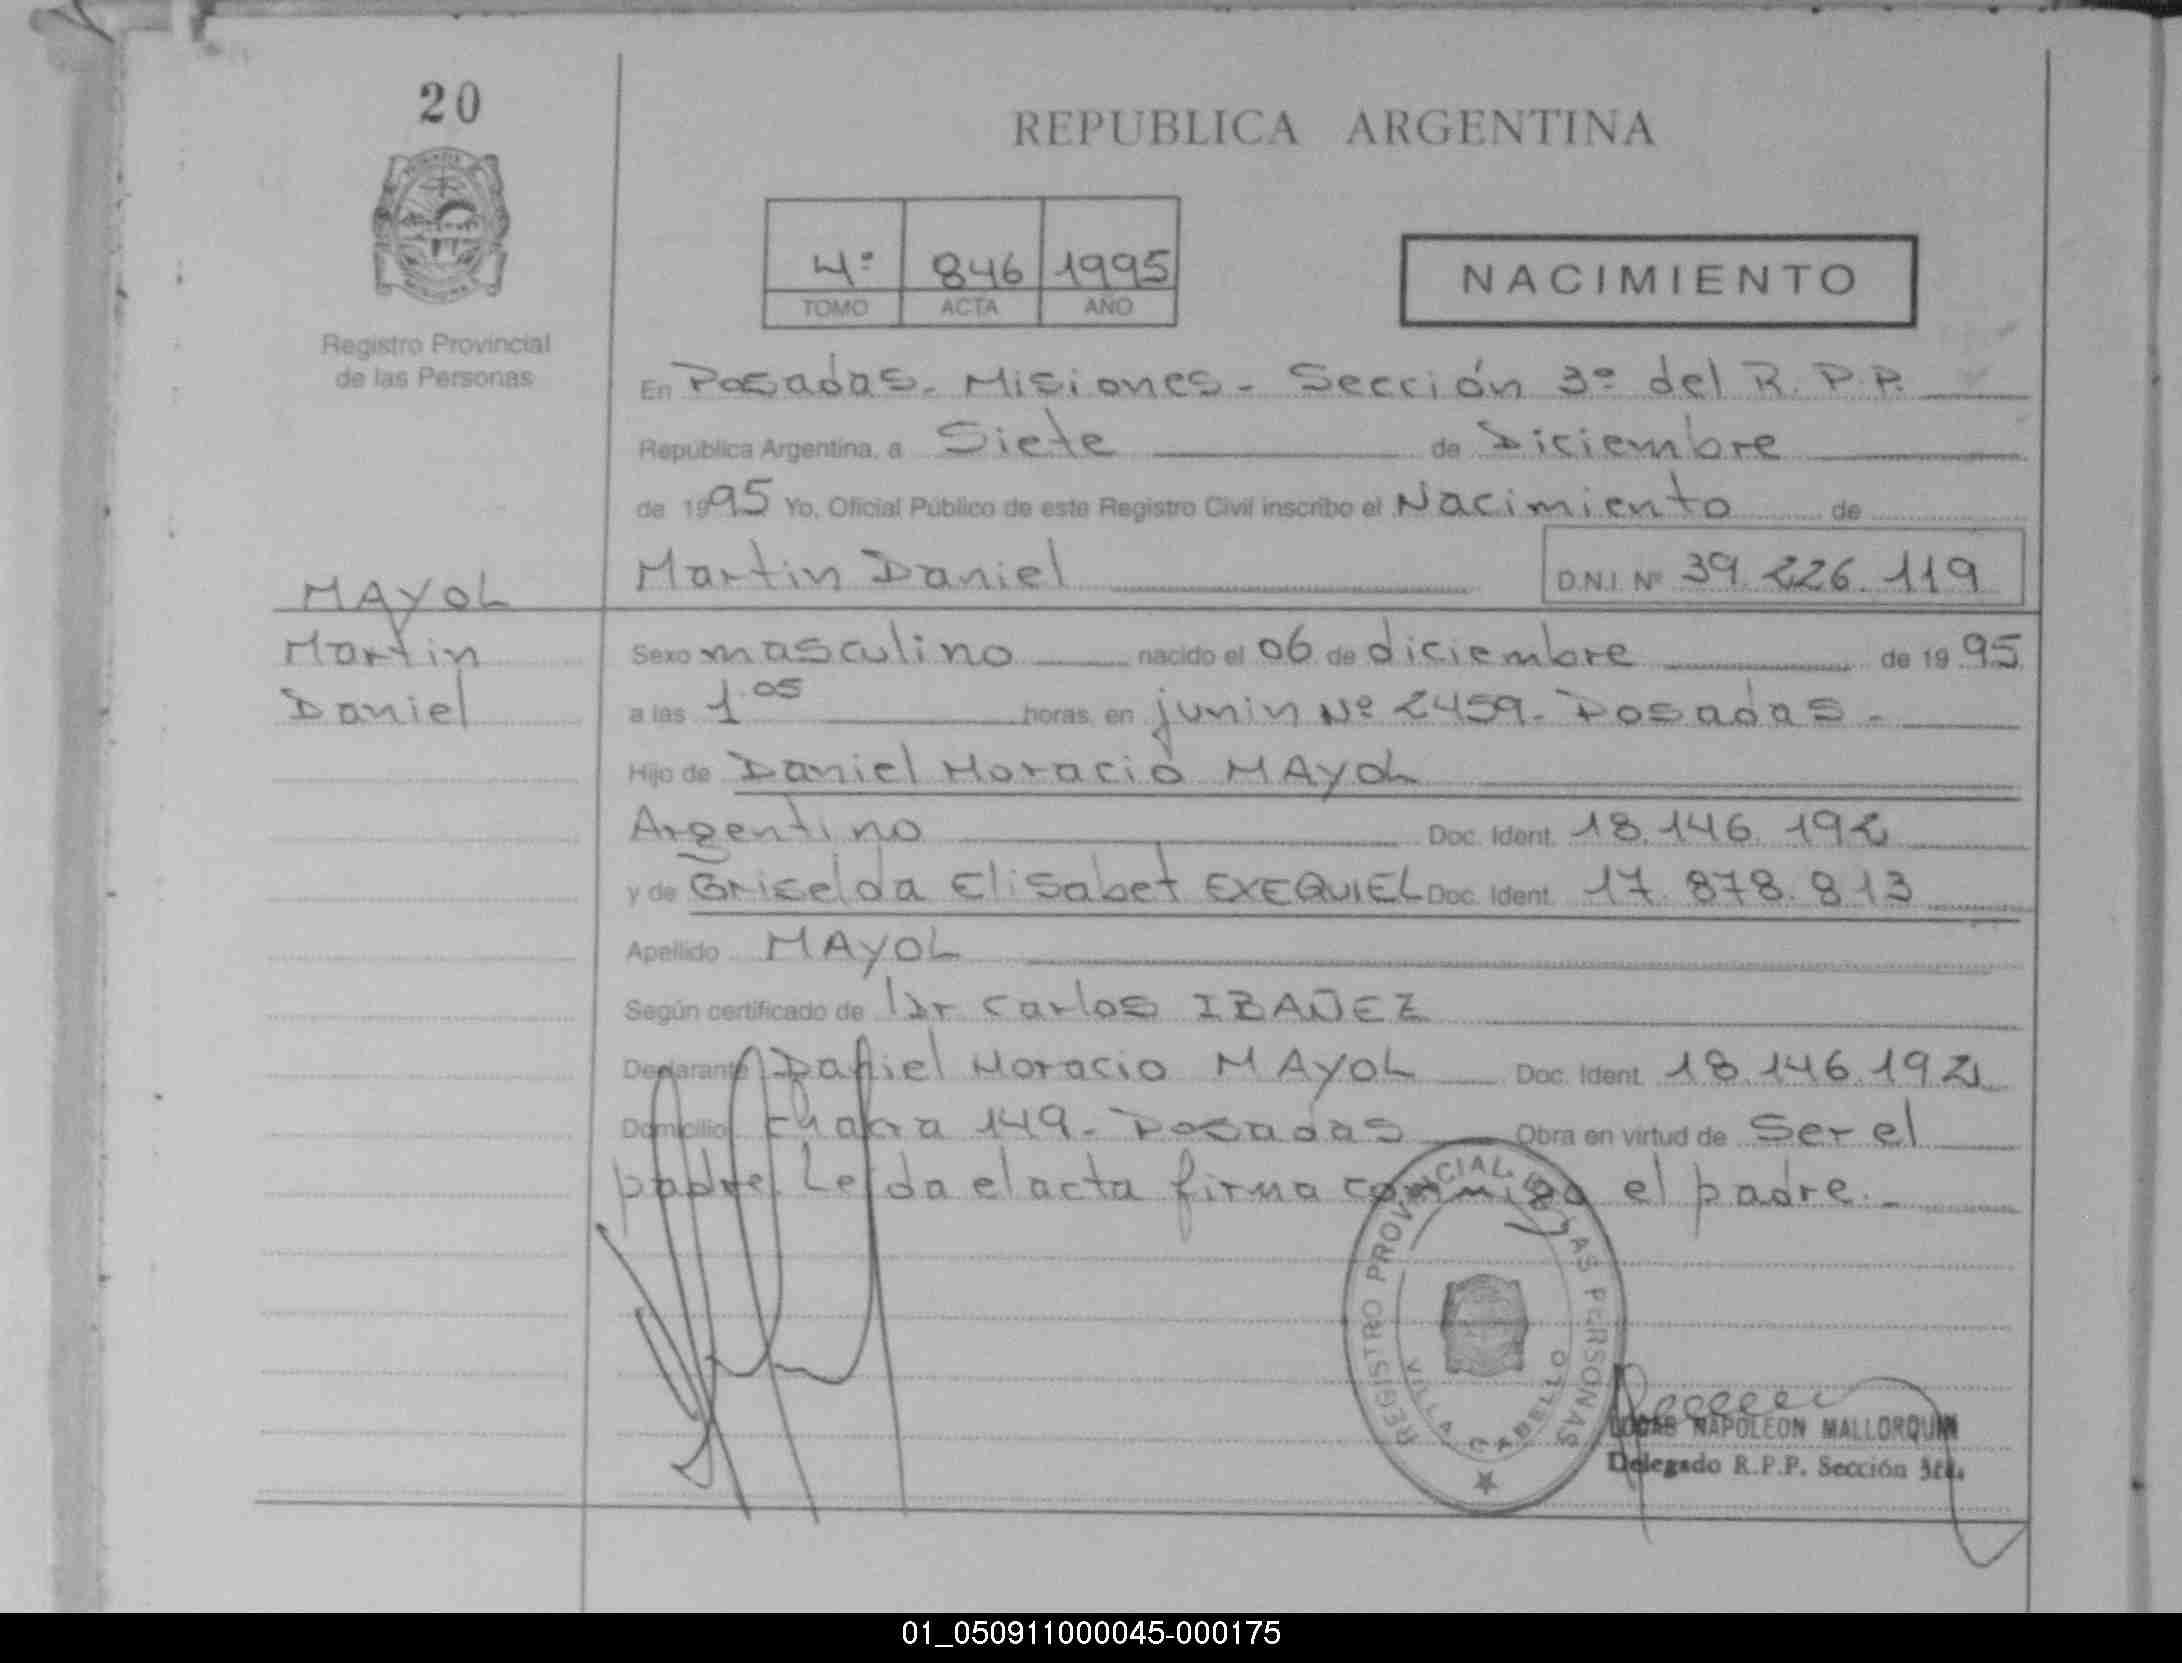 20
REPUBLICA ARGENTINA
4º 846 1995
TOMO ACTA AÑO
NACIMIENTO
Registro Provincial
de las Personas
En Posadas. Misiones - Sección 3º del R.P.P.
República Argentina, a Siete de Diciembre
de 1995 Yo, Oficial Público de este Registro Civil inscribo el Nacimiento de
Martin Daniel D.N.I. Nº 39.226.119
MAYOL
Martin
Daniel
Sexo masculino nacido el 06 de diciembre de 1995
a las 1.05 horas, en junin Nº 2459. Posadas -
Hijo de Daniel Horacio MAYOL
Argentino Doc. Ident. 18.146.192
y de Griselda Elisabet EXEQUIEL Doc. Ident. 17.878.813
Apellido MAYOL
Según certificado de Dr Carlos IBAÑEZ
Declarante Daniel Horacio MAYOL Doc. Ident. 18.146.192
Domicilio chacra 149 - Posadas Obra en virtud de Ser el
padre. Leida el acta firma conmigo el padre. -
REGISTRO PROVINCIAL DE LAS PERSONAS
VILLA CABELLO
LUCAS NAPOLEON MALLORQUIN
Delegado R.P.P. Sección 3ra.
01_050911000045-000175